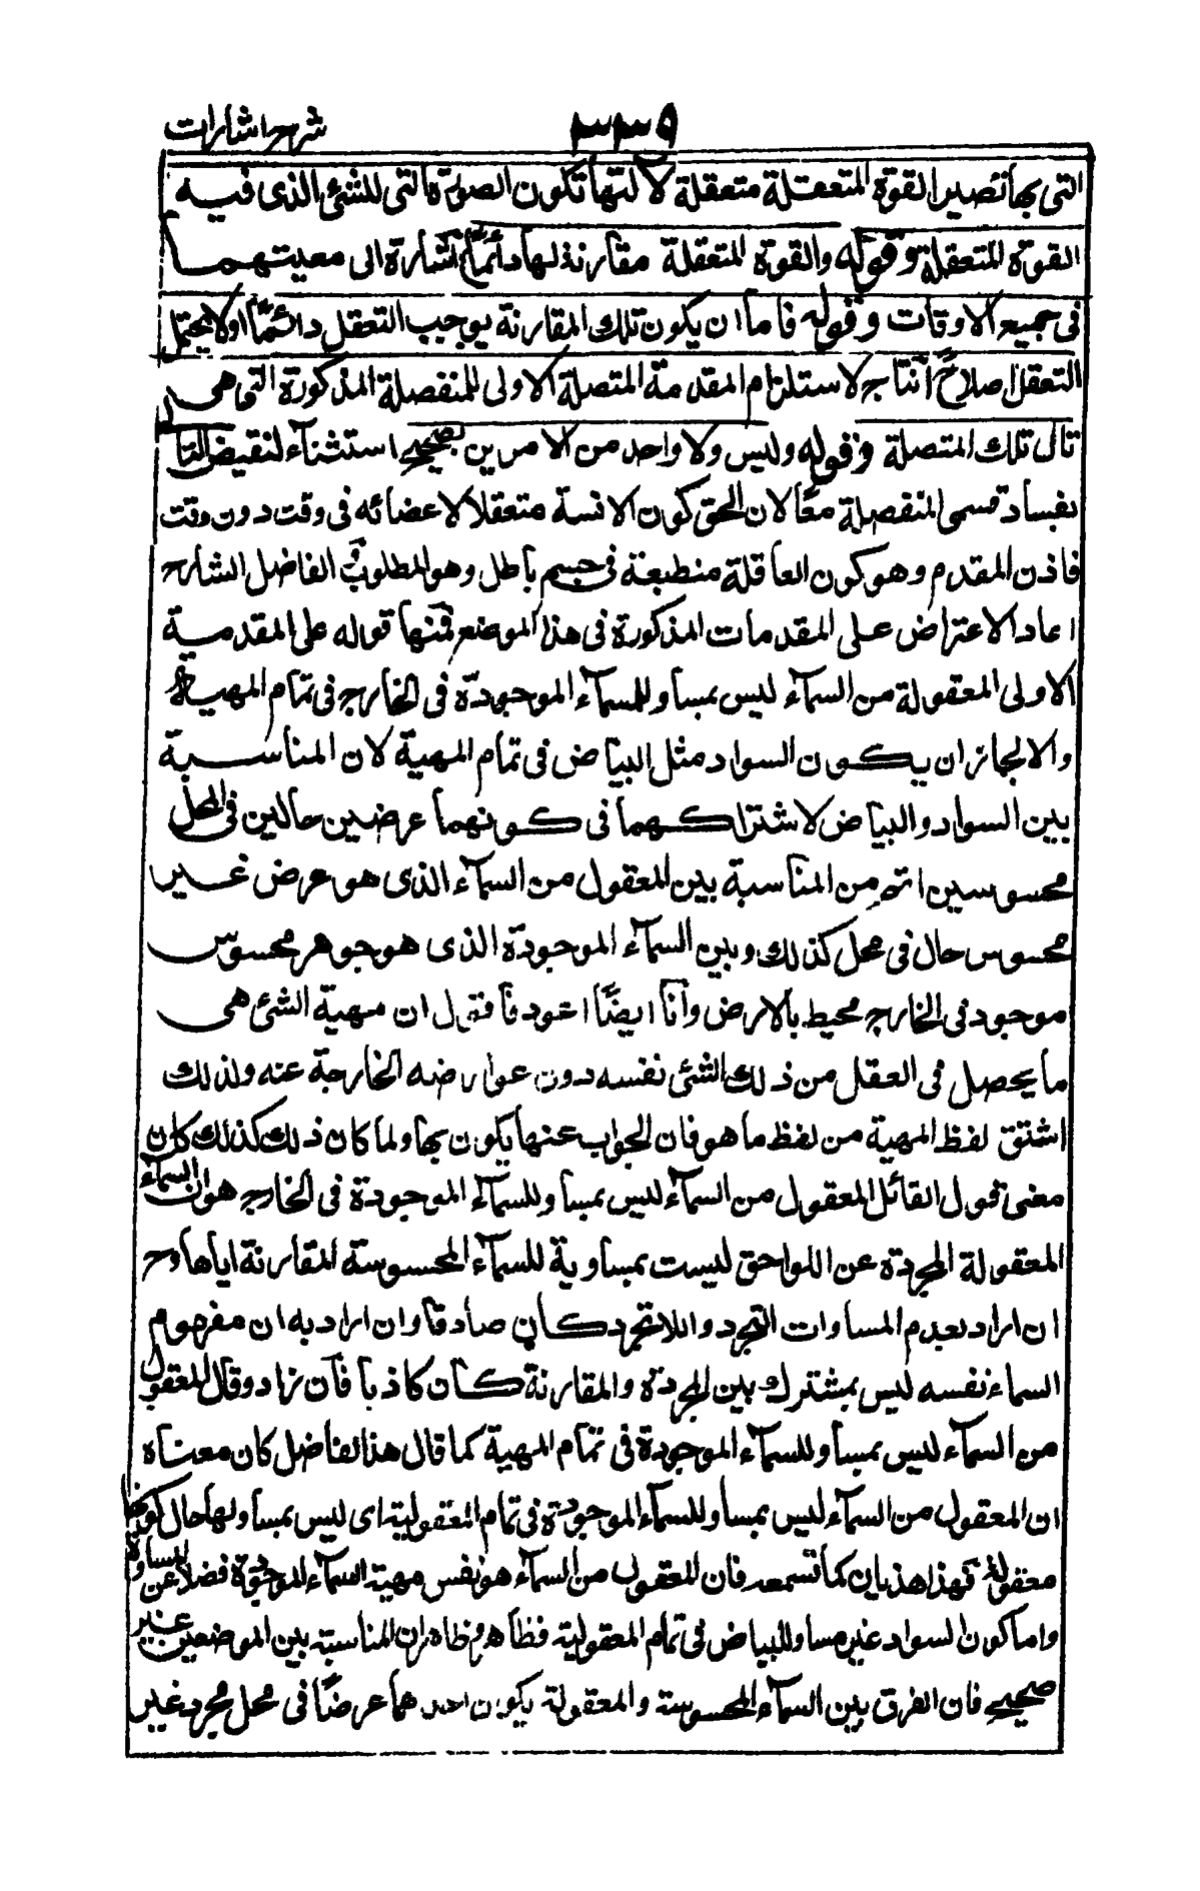 شرح اشارات
٣٣٥
التى بها تصير القوة المتعقلة متعقلة لآلتها تكون الصورة التى للشئ الذى فيه
القوة المتعقلة وقوله والقوة المتعقلة مقارنة لها دائما اشارة الى معيتهما
فى جميع الاوقات وقوله فاما ان يكون تلك المقارنة يوجب التعقل دائمًا اولا يحتمل
التعقل اصلاً انتاج لاستلزام المقدمة المتصلة الاولى للمنفصلة المذكورة التى هى
تالى تلك المتصلة وقوله وليس ولا واحد من الامرين بصحيح استثناء لنقيض التا
بفساد قسمى المنفصلة معًا لان الحق كون الانسة متعقلا لاعضائه فى وقت دون وقت
فاذن المقدم وهو كون العاقلة منطبعة فى جسم باطل وهو المطلوب الفاضل الشارح
اعاد الاعتراض على المقدمات المذكورة فى هذا الموضع فمنها قوله على المقدمة
الاولى المعقولة من السماء ليس بمساو للسماء الموجودة فى الخارج فى تمام المهية
والا لجاز ان يكون السواد مثل البياض فى تمام المهية لان المناسبة
بين السواد والبياض لاشتراكهما فى كونهما عرضين حالين فى المحل
محسوسين اتم من المناسبة بين المعقول من السماء الذى هو عرض غير
محسوس حال فى محل كذلك وبين السماء الموجودة الذى هو جوهر محسوس
موجود فى الخارج محيط بالارض وانا ايضًا اعود فاقول ان مهية الشئ هى
ما يحصل فى العقل من ذلك الشئ نفسه دون عوارضه الخارجة عنه ولذلك
اشتق لفظ المهية من لفظ ما هو فان الجواب عنها يكون بها ولما كان ذلك كذلك كان
معنى قول القائل المعقول من السماء ليس بمساو للسماء الموجودة فى الخارج هو ان السماء
المعقولة المجردة عن اللواحق ليست بمساوية للسماء المحسوسة المقارنة اياها وح
ان اراد بعدم المساوات التجرد واللاتجرد كان صادقا وان اراد به ان مفهوم
السماء نفسه ليس بمشترك بين المجردة والمقارنة كان كاذبا فان زاد وقال المعقول
من السماء ليس بمساو للسماء الموجودة فى تمام المهية كما قال هذا الفاضل كان معناه
ان المعقول من السماء ليس بمساو للسماء الموجودة فى تمام المعقولية اى ليس بمساو لها حال كونها
معقولة فهذا هذيان كما تسمعه فان المعقول من السماء هو نفس مهية السماء الموجودة فضلا عن المساواة
واما كون السواد غير مساو للبياض فى تمام المعقولية فظاهر وظاهر ان المناسبة بين الموضعين غير
صحيح فان الفرق بين السماء المحسوسة والمعقولة يكون احدهما عرضًا فى محل مجرد غير